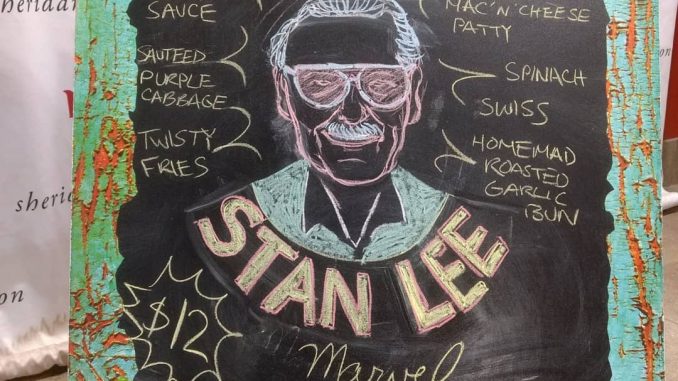 SAUCE
SAUTEED
PURPLE
CABBAGE
TWISTY
FRIES
MAC'N'CHEESE
PATTY
SPINACH
SWISS
HOMEMAD
ROASTED
GARLIC
BUN
STAN LEE
$12
Marvel
sherida
sheri
on